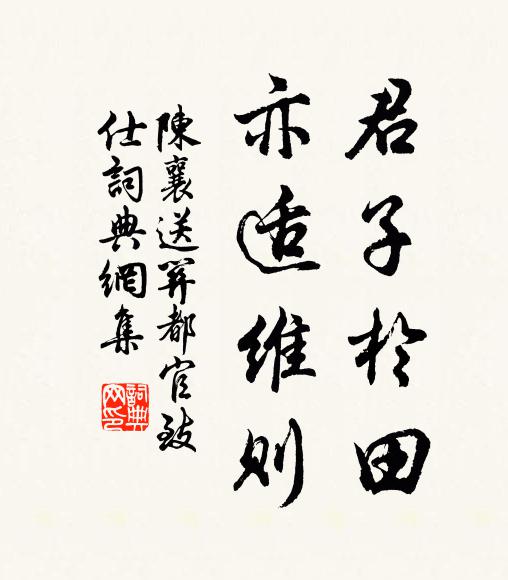 君子於田
亦适維則
陳襄送羿都官致
仕詞典網集
詞典
网印